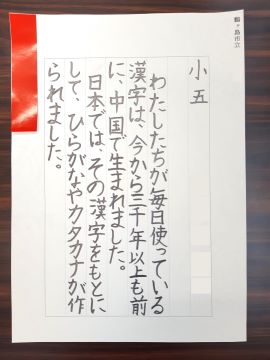 鶴ヶ島市立
小五
わたしたちが毎日使っている
漢字は、今から三千年以上も前
に、中国で生まれました。
日本では、その漢字をもとに
して、ひらがなやカタカナが作
られました。